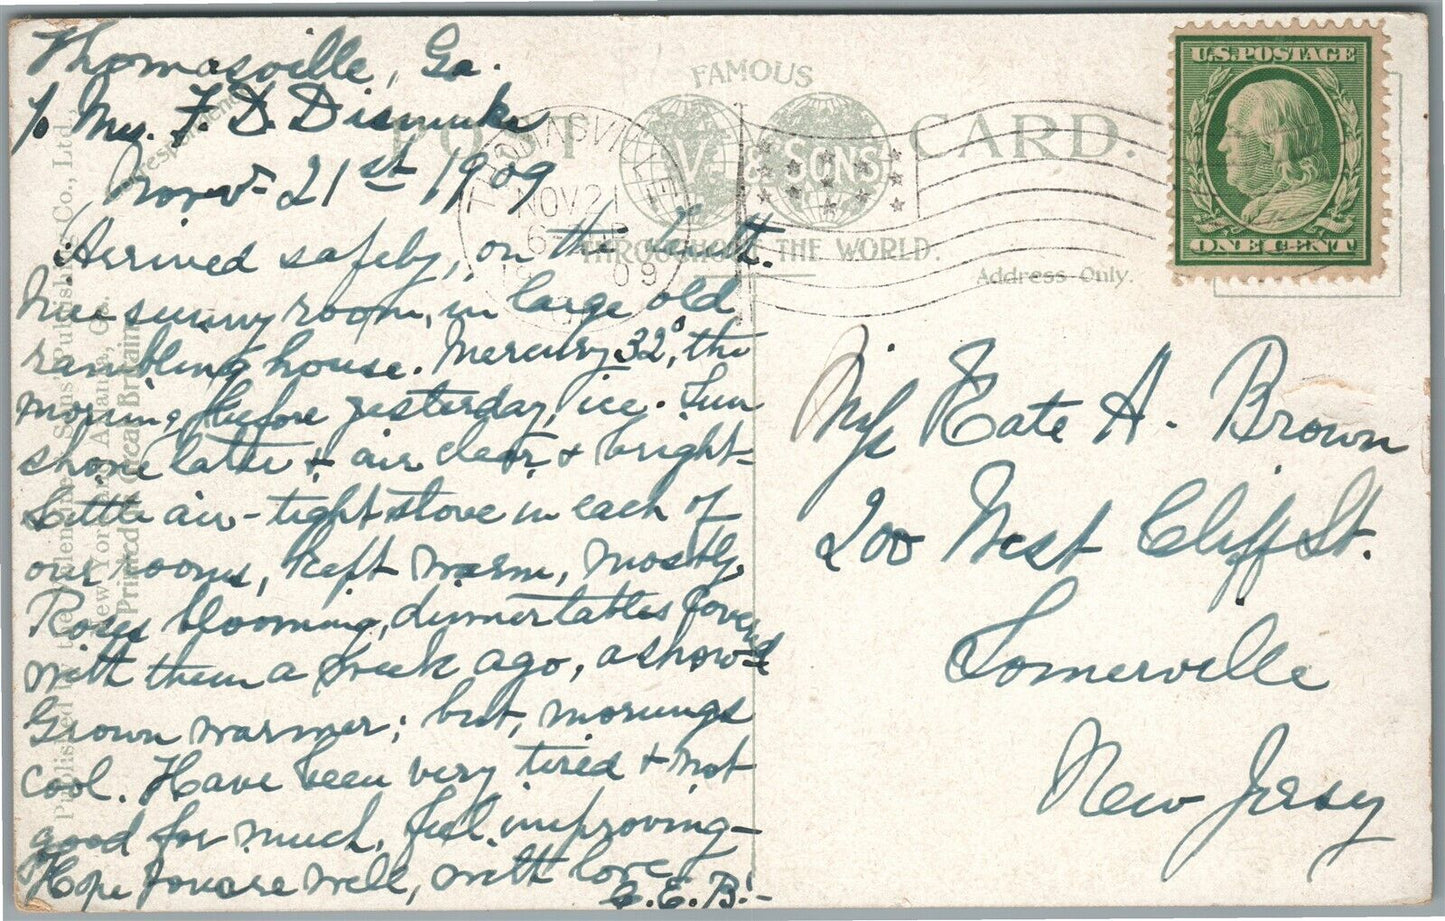 Thomasville, Ga.
% Mrs. F. D. Dismuke
Nov. 21st 1909
Arrived safely, on the
Nice sunny room, in large old
rambling house. Mercury 32°, the
morning before yesterday, ice. Sun
shone latter & air clear & bright-
Little air-tight stove in each of
our rooms, kept warm, mostly.
Roses blooming, dinner tables covered
with them a week ago, a show'd
Grown warmer; but, mornings
cool. Have been very tired & not
good for much, feel improving-
Hope you are well, with love,
G. E. B.-
Correspondence
Published by the Valentine & Sons' Publishing Co., Ltd.,
New York and Atlanta, Ga.
Printed in Great Britain
FAMOUS
POST CARD.
V. & SONS
THROUGHOUT THE WORLD.
Address Only.
THOMASVILLE
NOV 21
6
1909
U.S. POSTAGE
ONE CENT
Miss Kate A. Brown
200 West Cliff St.
Somerville
New Jersey